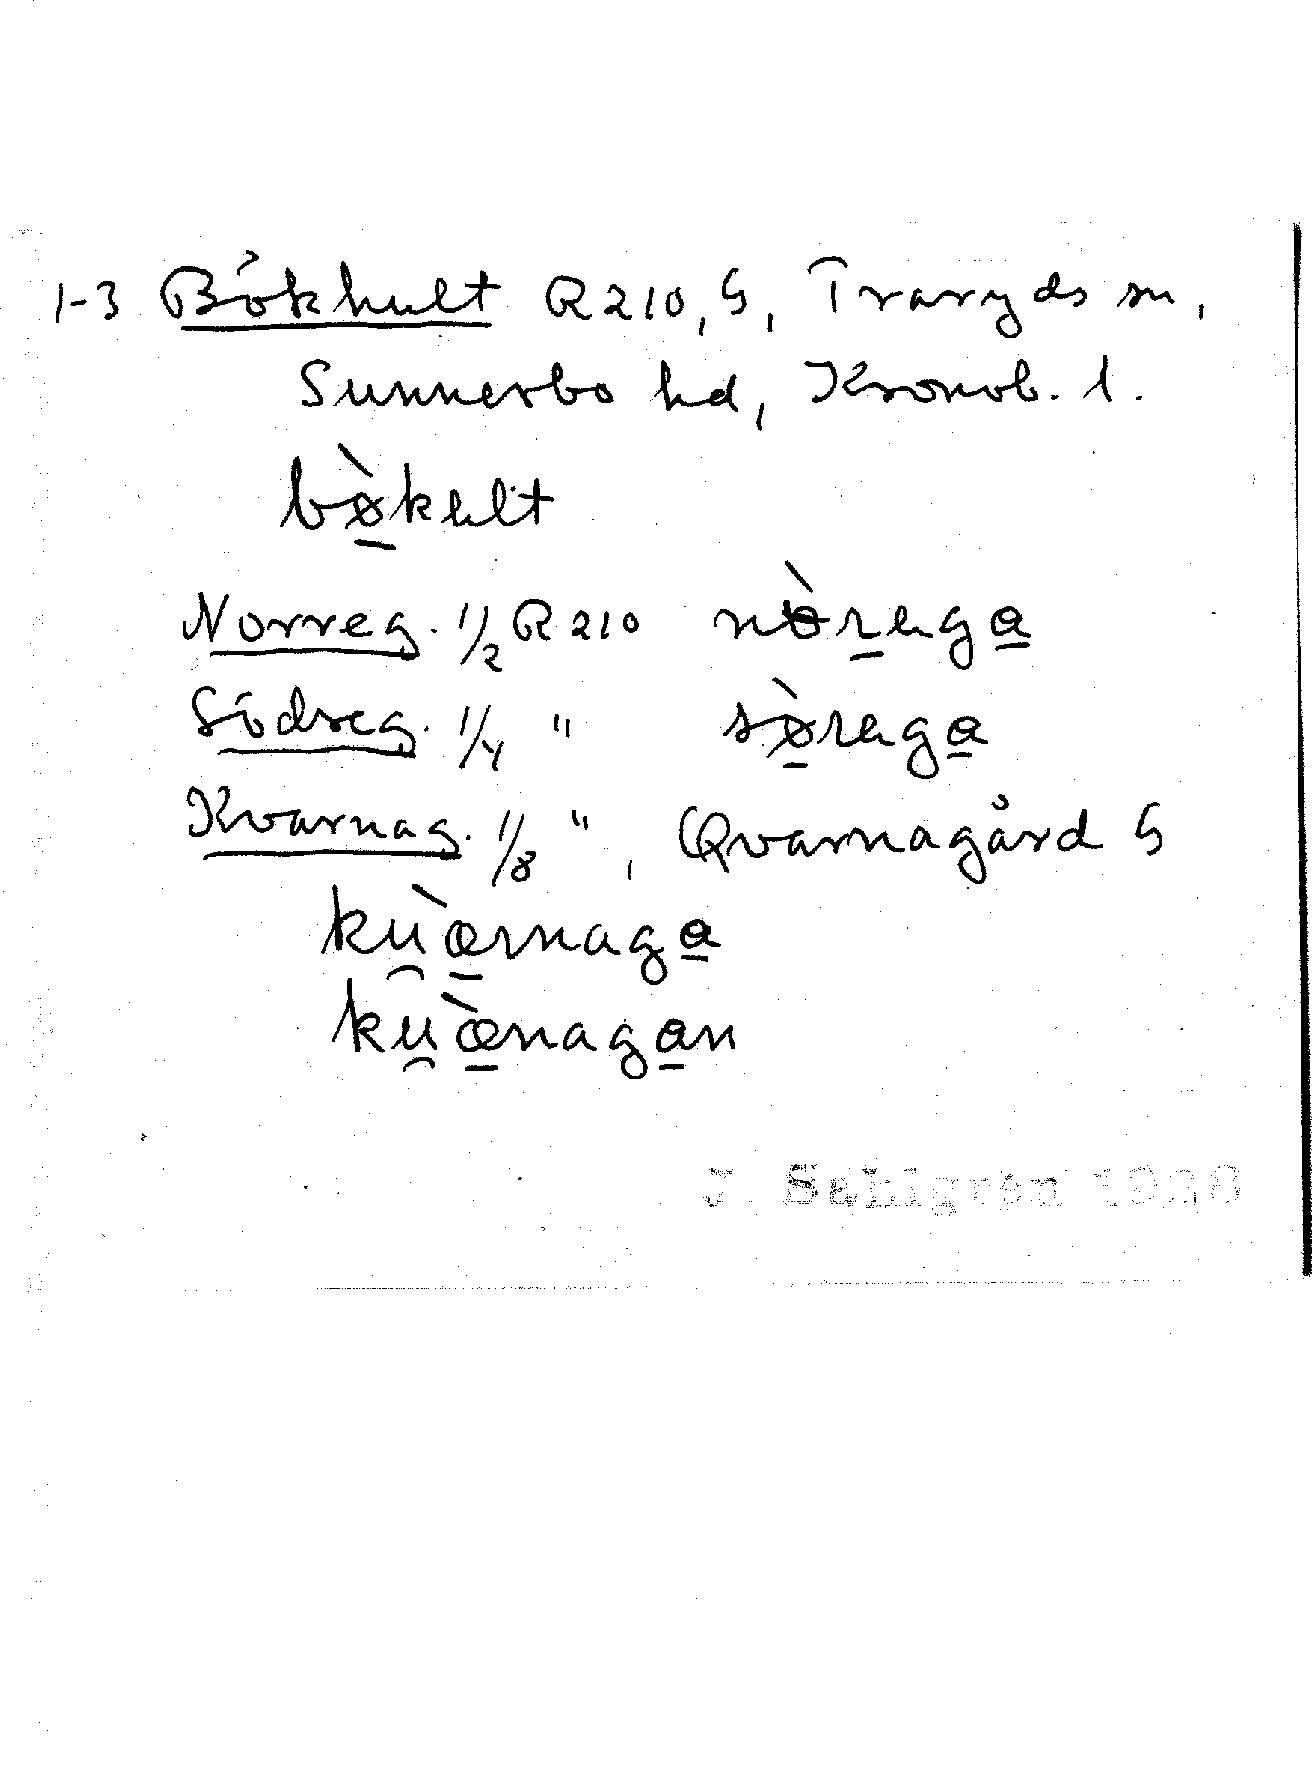 1-3 Bökhult R 210, G, Traryds sn,
Sunnerbo hd, Kronob. l.
bø̠̀kƕlt
Norreg. 1/2 R 210 nɵ̀r̠ega̠
Södreg. 1/4 " sø̠̀rega̠
Kvarnag. 1/8 ", Qvarnagård G
ku̯æ̠̀rnaga̠
ku̯æ̠̀naga̠n
J. Sahlgren 1926